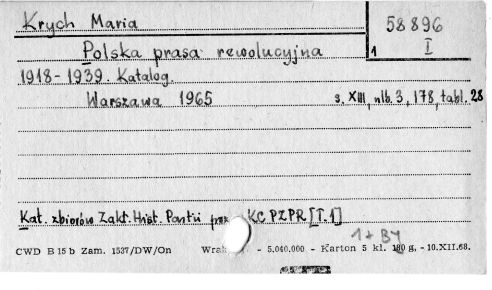 Krych Maria
58896
1 I
Polska prasa rewolucyjna
1918-1939. Katalog.
Warszawa 1965 s. XIII, nlb. 3, 178, tabl. 28
Kat. zbiorów Zakł. Hist. Partii przy KC PZPR [T. 1]
1 + BJ
CWD B 15 b Zam. 1537/DW/On - 5.000.000 - Karton 5 kl. 180 g. - 10.XII.68.